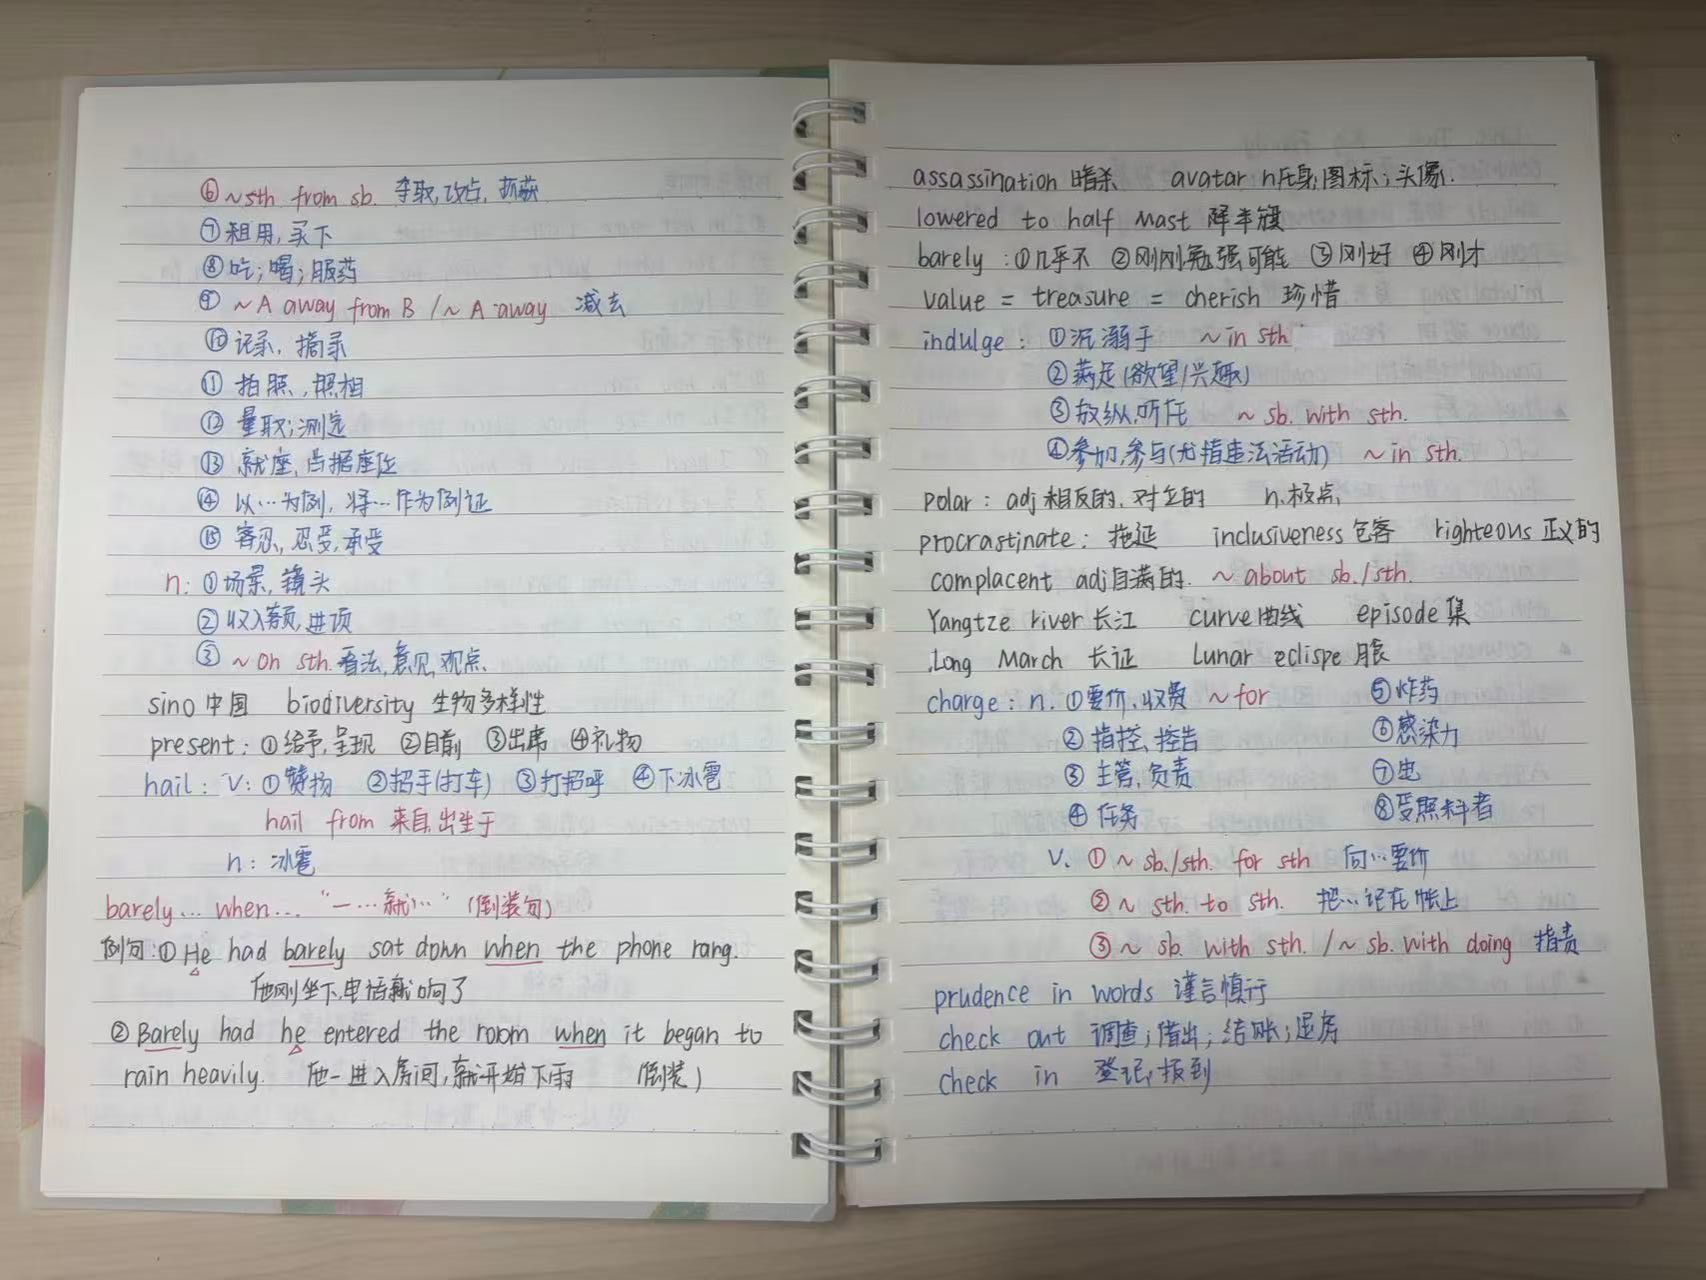 ⑥ ~sth from sb. 夺取,攻占,抓获
⑦ 租用,买下
⑧ 吃;喝;服药
⑨ ~A away from B / ~ A away 减去
⑩ 记录,摘录
⑪ 拍照,照相
⑫ 量取;测定
⑬ 就座,占据座位
⑭ 以…为例,将…作为例证
⑮ 容忍,忍受,承受
n: ①场景,镜头
② 收入额,进项
③ ~on sth. 看法,意见,观点
sino 中国 biodiversity 生物多样性
present: ①给予,呈现 ②目前 ③出席 ④礼物
hail: V: ①赞扬 ②招手(打车) ③打招呼 ④下冰雹
hail from 来自,出生于
n: 冰雹
barely... when... "一…就…" (倒装句)
例句:①He had barely sat down when the phone rang.
他刚坐下,电话就响了
② Barely had he entered the room when it began to
rain heavily. 他一进入房间,就开始下雨 (倒装)
assassination 暗杀 avatar n.化身;图标;头像.
lowered to half mast 降半旗
barely: ①几乎不 ②刚刚勉强可能 ③刚好 ④刚才
value = treasure = cherish 珍惜
indulge: ①沉溺于 ~in sth
②满足(欲望/兴趣)
③放纵,听任 ~ sb. with sth.
④参加,参与(尤指违法活动) ~in sth.
polar: adj 相反的,对立的 n.极点
procrastinate: 拖延 inclusiveness 包容 righteous 正义的
complacent adj自满的. ~ about sb./sth.
Yangtze river 长江 curve曲线 episode 集
Long March 长征 Lunar eclispe 月食
charge: n. ①要价,收费 ~for ⑤炸药
②指控,控告 ⑥感染力
③ 主管,负责 ⑦电
④ 任务 ⑧受照料者
V. ① ~ sb./sth. for sth 向…要价
② ~ sth. to sth. 把…记在帐上
③ ~ sb. with sth. / ~ sb. with doing 指责
prudence in words 谨言慎行
check out 调查;借出;结账;退房
check in 登记,报到